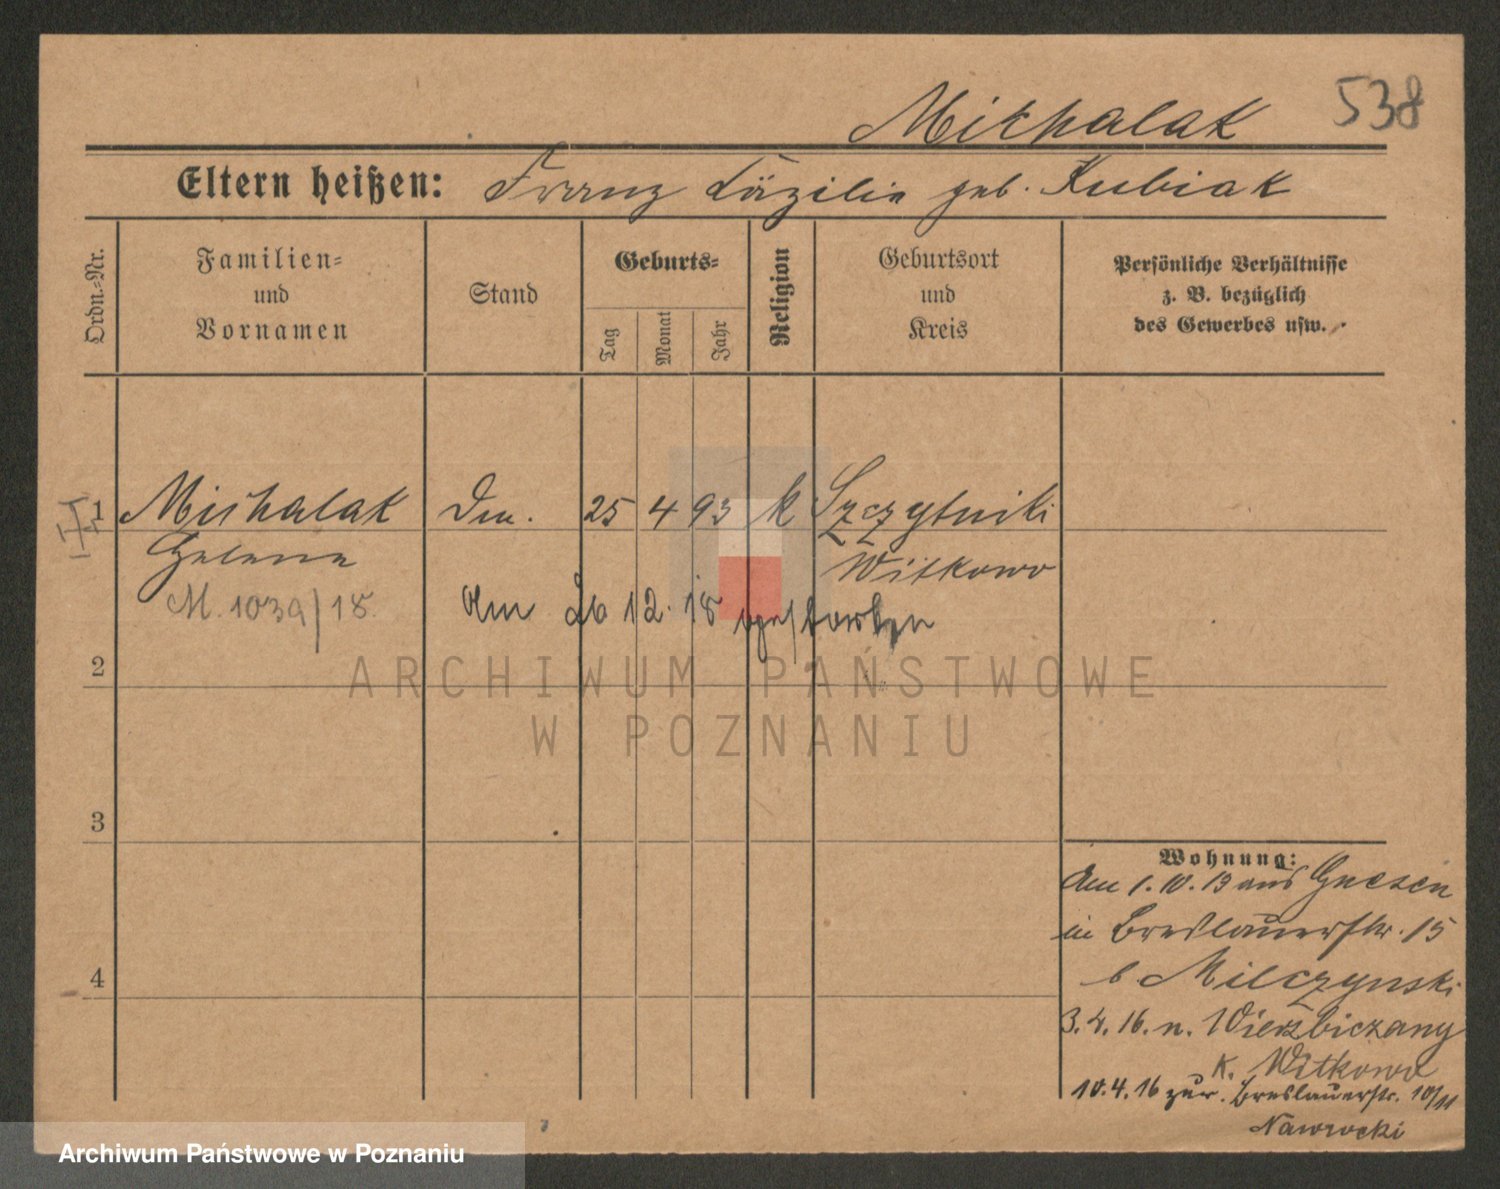 Michalak
538
Eltern heißen: Franz Cäzilie geb. Kubiak
Ordn.-Nr.
Familien-
und
Vornamen
Stand
Geburts-
Tag
Monat
Jahr
Religion
Geburtsort
und
Kreis
Persönliche Verhältnisse
z. B. bezüglich
des Gewerbes usw.
1 Michalak 25 4 93 k Szczytniki
Helene Witkowo
M. 1039/18. Am 26 12. 18 gestorben
2
ARCHIWUM PAŃSTWOWE
W POZNANIU
3
4
Wohnung:
Am 1. 10. 13 aus Gnesen
in Breslauerstr. 15
b. Milczynski
3. 4. 16. n. Wierzbiczany
K. Witkowo
10. 4. 16 zur. Breslauerstr. 10/11
Nawrocki
Archiwum Państwowe w Poznaniu